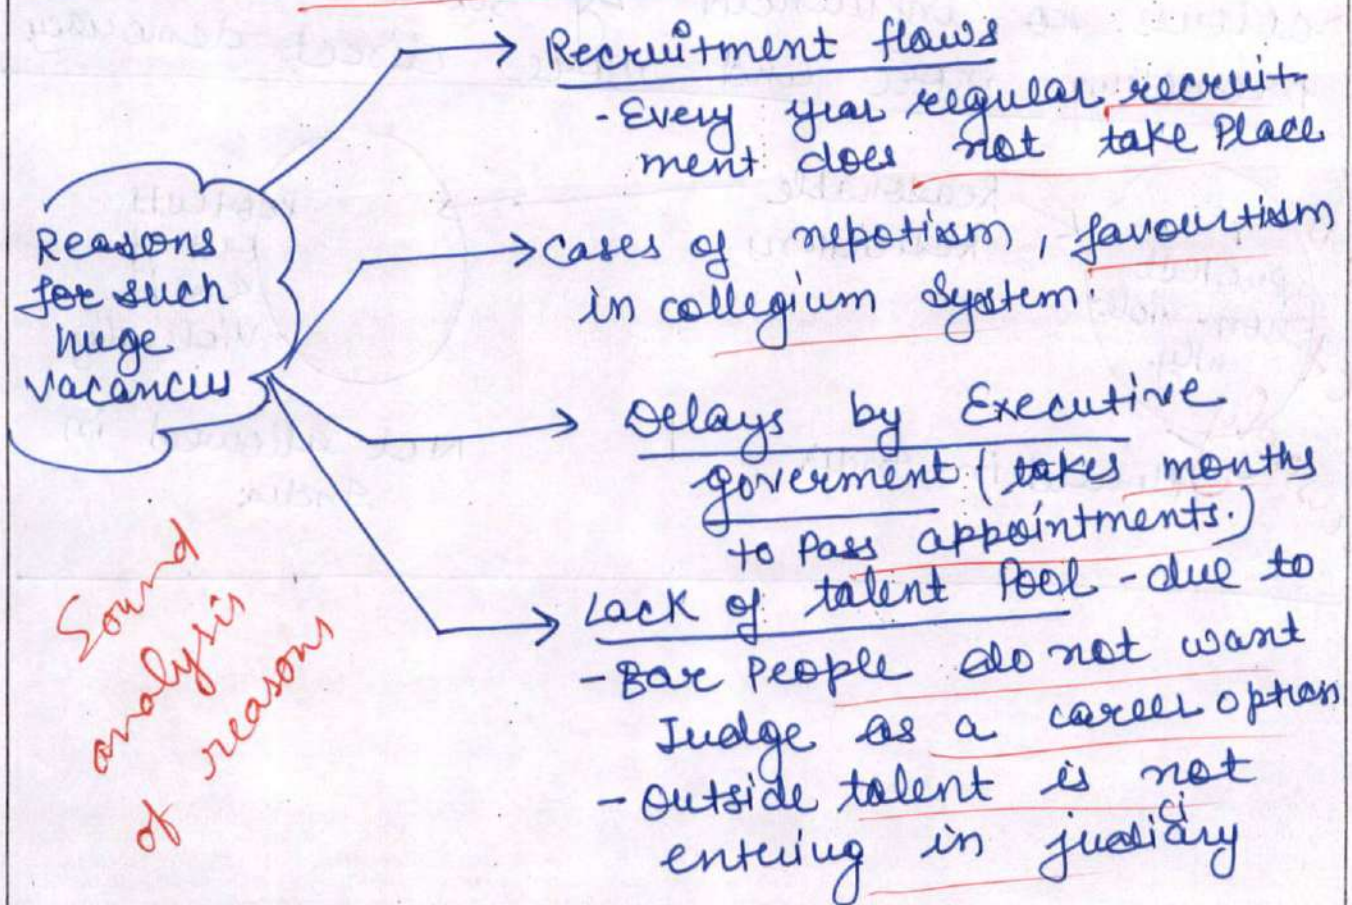 Recruitment flaws
- Every year regular recruit-
ment does not take Place
Reasons
for such
huge
vacancies
cases of nepotism, favourtism
in collegium system.
Delays by Executive
goverment (takes months
to Pass appointments.)
Lack of talent Pool - due to
- Bar People do not want
Judge as a career option
- Outside talent is not
entering in judiciary
Sound
analysis
of reasons